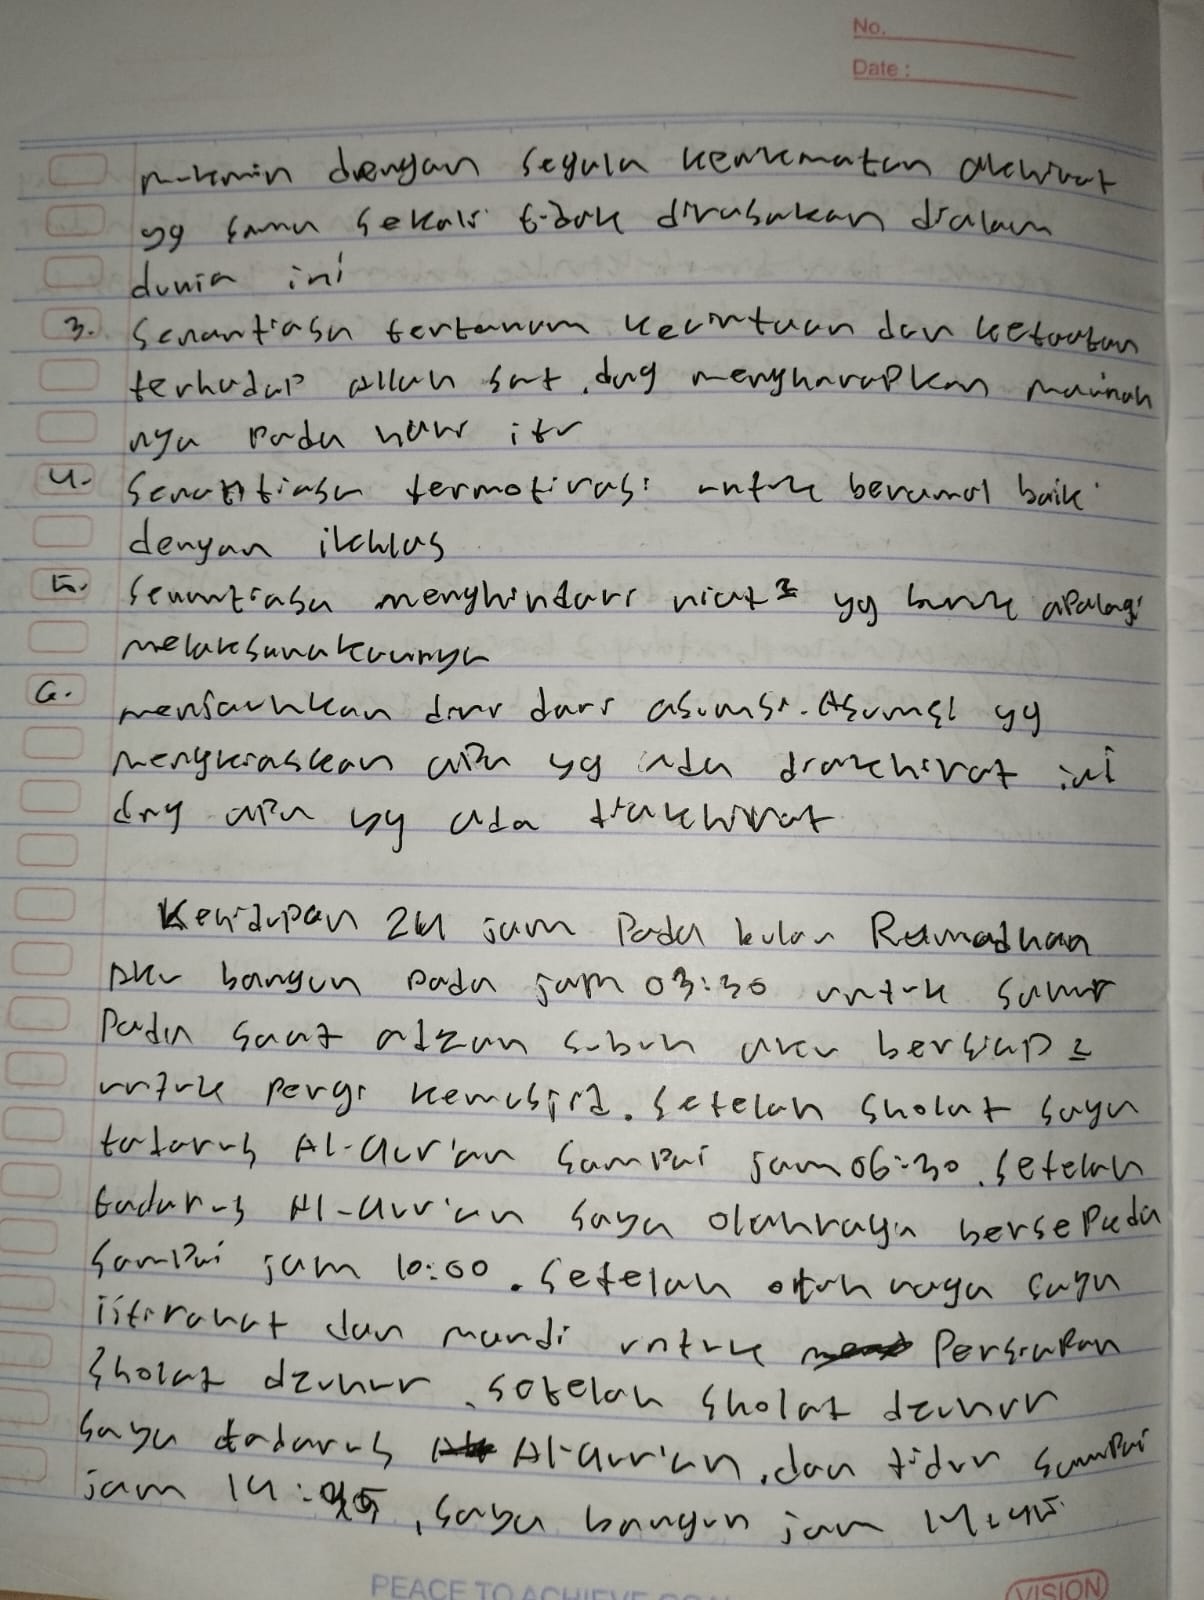 No.
Date :
mukmin dengan segala kenikmatan akhirat
yg sama sekali tidak dirasakan dialam
dunia ini
3. Senantiasa tertanam kecintaan dan ketaatan
terhadap Allah swt, dng mengharapkan maunah
nya pada hari itu
4. Senantiasa termotivasi untuk beramal baik
dengan ikhlas
5. Senantiasa menghindari niat2 yg buruk apalagi
melaksanakannya
6. menjauhkan diri dari asumsi-Asumsi yg
mengkiaskan apa yg ada diakhirat ini
dng apa yg ada diakhirat
Kehidupan 24 jam Pada bulan Ramadhan
Aku bangun pada jam 03:30 untuk sahur
Pada saat adzan subuh aku bersiap2
untuk pergi kemasjid. Setelah sholat saya
tadarus Al-Qur'an sampai jam 06:30. Setelah
tadarus Al-Qur'an saya olahraga bersepeda
sampai jam 10:00. Setelah olahraga saya
istirahat dan mandi untuk Persiapan
Sholat dzuhur. setelah sholat dzuhur
saya tadarus Al-Qur'an, dan tidur sampai
jam 14:45, saya bangun jam 14:45
PEACE TO ACHIEVE
VISION